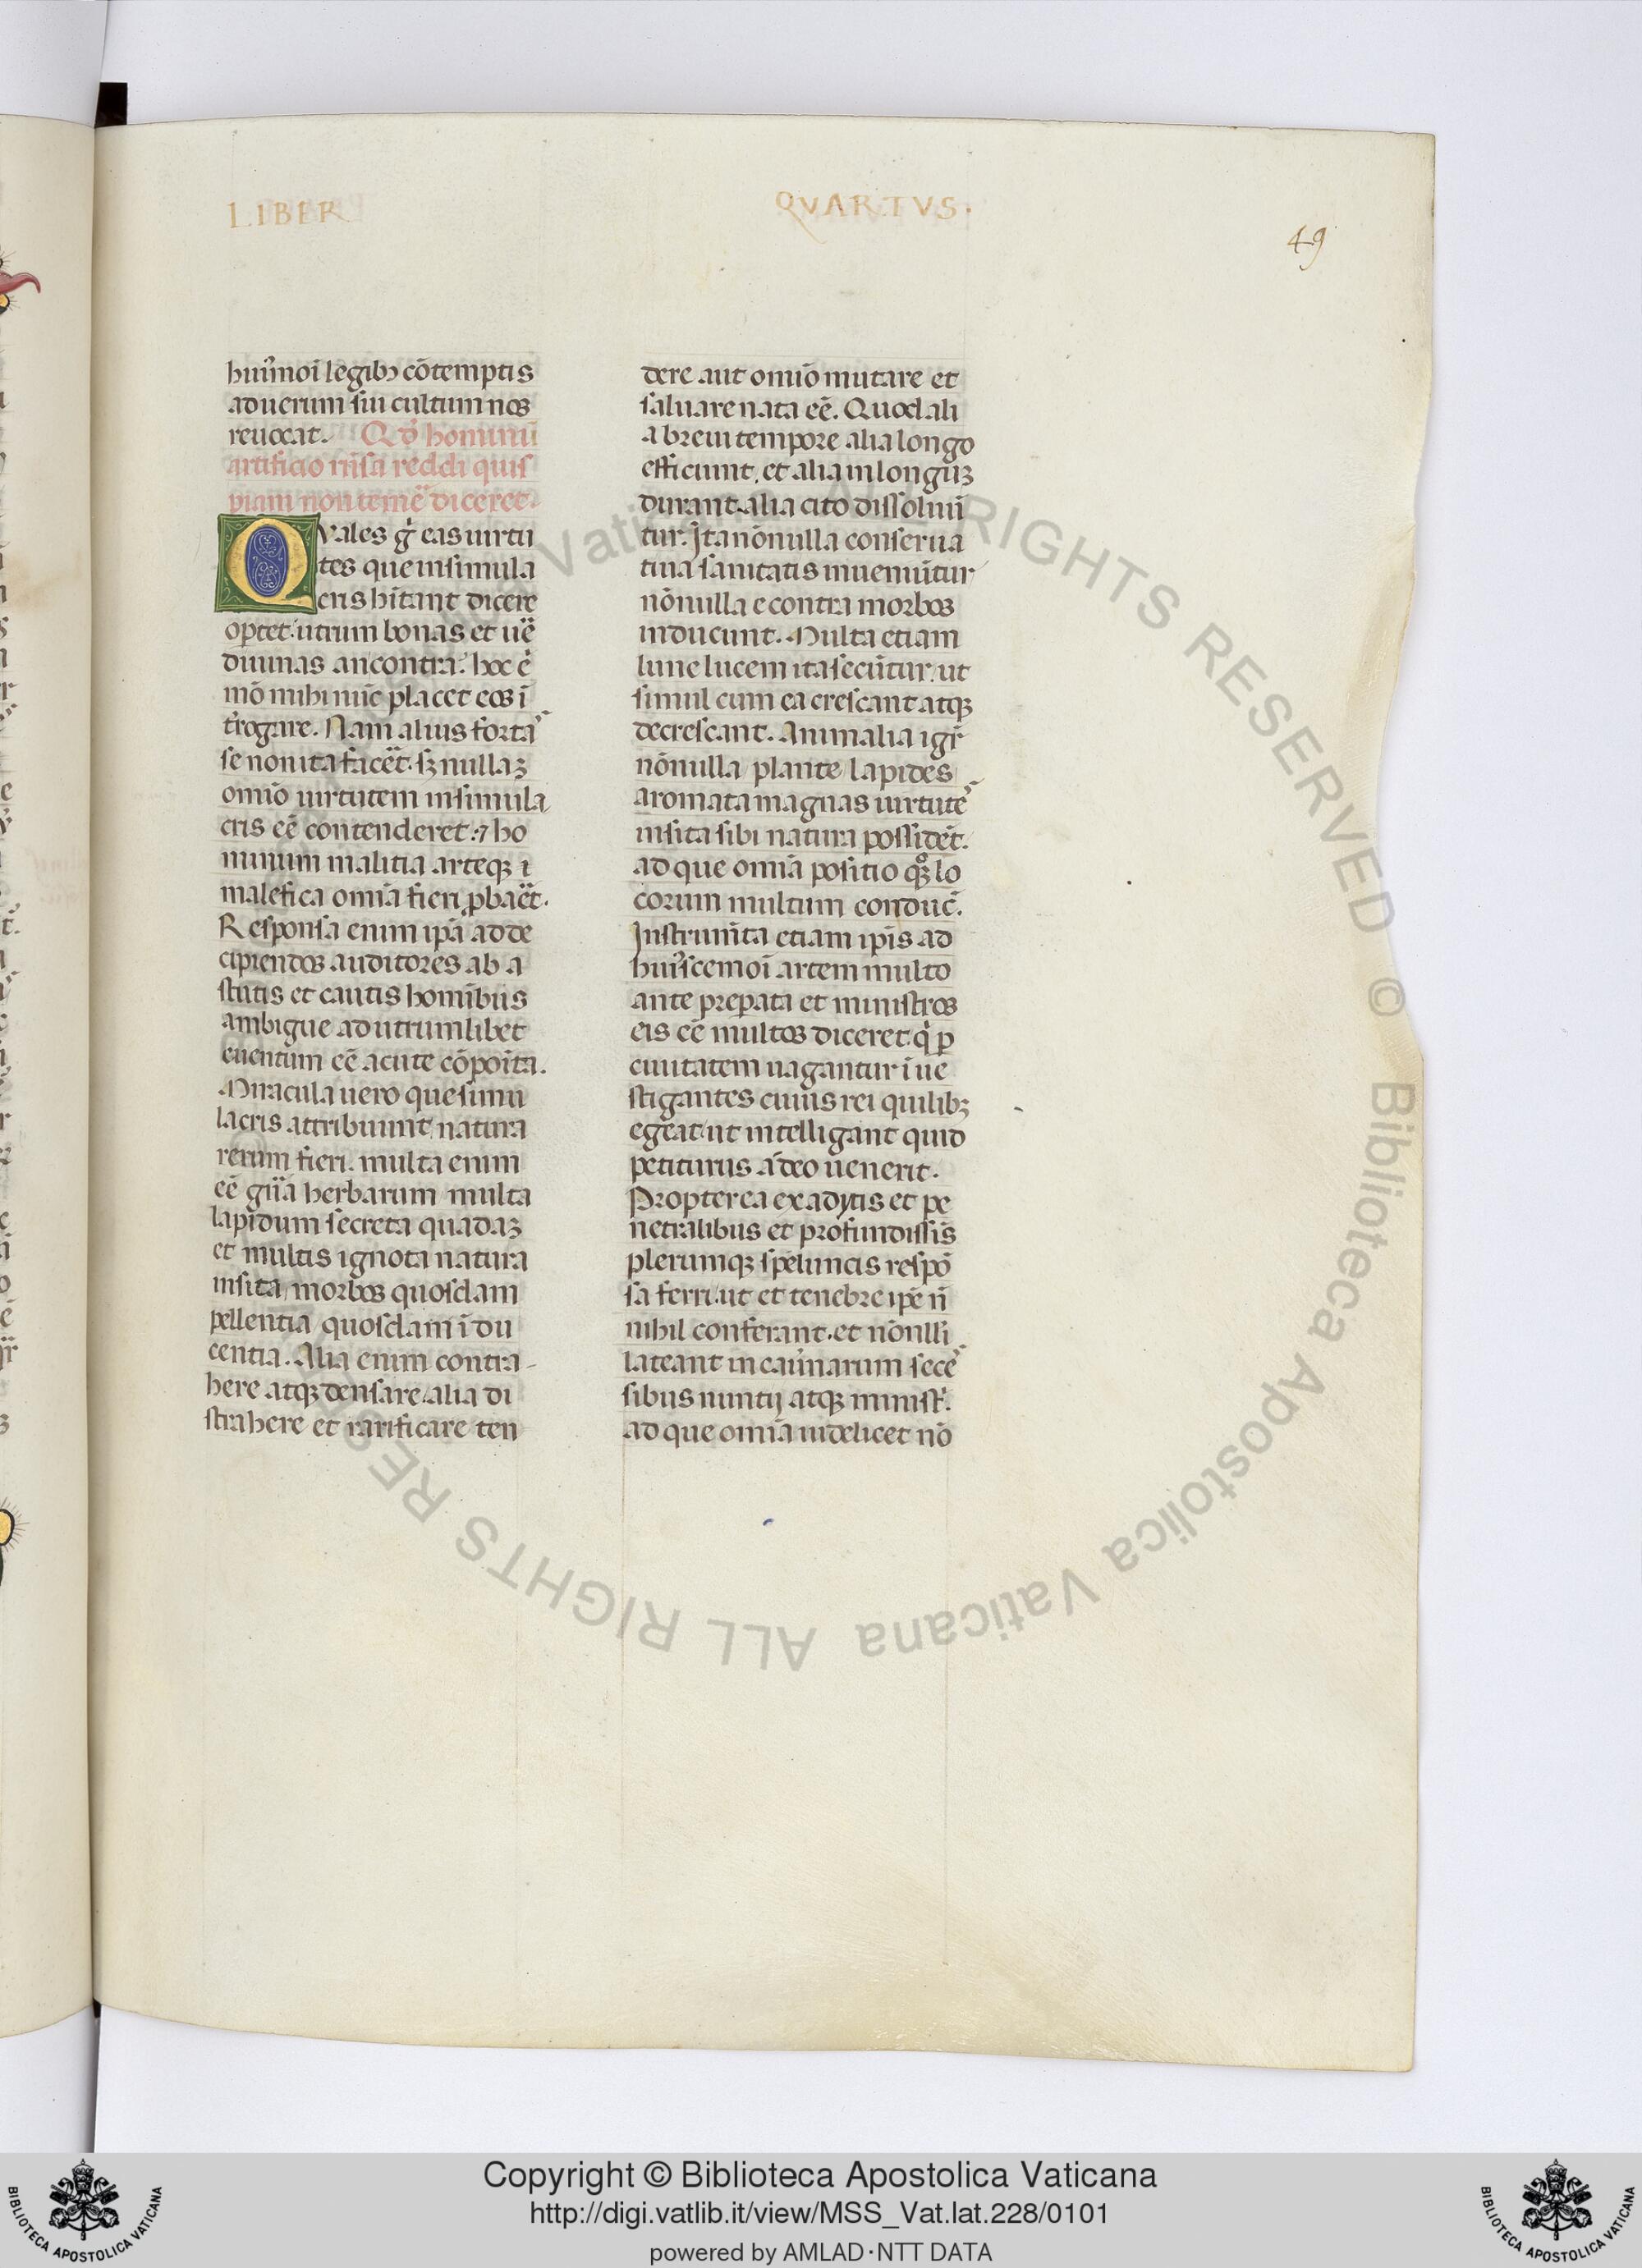 LIBER QVARTVS.
49
huiꝰmoi legibꝫ cōtemptis
ad uerum sui cultum nos
reuocat. Qd̄ hominū
artificio rn̄sa reddi quis
piam non temē diceret.
QVales gͥ eas uirtu
tes que in simula
cris hītant dicere
oportet: utrum bonas et ue
diuinas an contra: hoc ē
mō mihi nūc placet eos ī
trogare. Nam alius forta
se non ita facēt. sꝫ nullaꝫ
omīo uirtutem in simula
cris eē contenderet: ⁊ ho
minum malitia arteqꝫ ⁊
malefica omīa fieri ꝓbaēt.
Responsa enim ipā ad de
cipiendos auditores ab a
stutis et cautis hominibus
ambigue ad utrumlibet
euentum eē acute cōpoīta.
Miracula uero que simu
lacris attribuunt natura
rerum fieri. multa enim
eē gn̄a herbarum multa
lapidum secreta quadaꝫ
et multis ignota natura
insita morbos quosdam
pellentia quosdam īdu
centia. Alia enim contra-
here atqꝫ densare. alia di
strahere et rarificare ten
dere aut omīo mutare et
saluare nata eē. Quod ali
a breui tempore alia longo
efficiunt, et alia in longūꝫ
durant alia cito dissoluū
tur. Ita nōnulla conserua
tiua sanitatis inueniūtur
nōnulla e contra morbos
inducunt. Multa etiam
lune lucem ita secūtur. ut
simul cum ea crescant atqꝫ
decrescant. Animalia igr̄
nōnulla plante lapides
aromata magnas uirtute
insita sibi natura possidēt.
ad que omīa positio qꝫ lo
corum multum conduc̄.
Instrumīta etiam ipīs ad
huiꝰscemoī artem multo
ante preparata et ministros
eis eē multos diceret. qͥ ꝑ
ciuitatem uagantur ī ue
stigantes cuius rei quilibꝫ
egeat: ut intelligant quid
petiturus a deo uenerit.
Propterea ex adytis et pe
netralibus et profundissīs
plerumqꝫ speluncis respō
sa ferri. ut et tenebre ipē n̄
nihil conferant. et nōnlli
lateant in cauꝰnarum sece
sibus nuntij atqꝫ ministͥ.
ad que omīa uidelicet nō
Copyright © Biblioteca Apostolica Vaticana
http://digi.vatlib.it/view/MSS_Vat.lat.228/0101
powered by AMLAD·NTT DATA
BIBLIOTECA APOSTOLICA VATICANA
BIBLIOTECA APOSTOLICA VATICANA
ALL RIGHTS RESERVED © Biblioteca Apostolica Vaticana